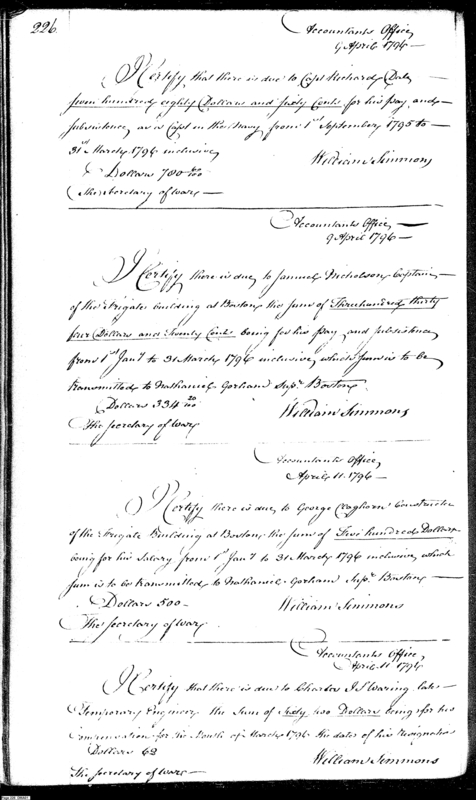 226.
Accountants Office,
9 April 1796—
I Certify, that there is due to Capt Richard Dale
seven hundred eighty Dollars and sixty Cents for his pay, and
subsistence, as a Capt in the Navy, from 1st September 1795 to
31st March 1796 inclusive,
Dollars 780 60/100
The Secretary of War
William Simmons
Accountants Office,
9 April 1796—
I Certify there is due, to Samuel Nicholson Captain
of the Frigate building at Boston, the sum of Three hundred thirty
four Dollars and Twenty Cents being for his pay, and subsistence,
from 1st Jany to 31 March 1796 inclusive, which sum is to be
transmitted to Nathaniel Gorham Supt. Boston,
Dollars 334 20/100
The Secretary of War
William Simmons
Accountants Office,
April 11. 1796—
I Certify there is due to George Claghorn Constructor
of the Frigate Building at Boston the sum of Five hundred Dollars
being for his Salary from 1st Jany to 31 March 1796 inclusive, which
sum is to be transmitted to Nathaniel Gorham Supt. Boston—
Dollars 500—
The Secretary of War.
William Simmons
Accountants Office,
April 11th 1796
I Certify that there is due to Charles J S Waring late
Temporary Engineer the sum of Sixty two Dollars being for his
Compensation for the Month of March 1796 the date of his resignation
Dollars 62
The Secretary of War—
William Simmons